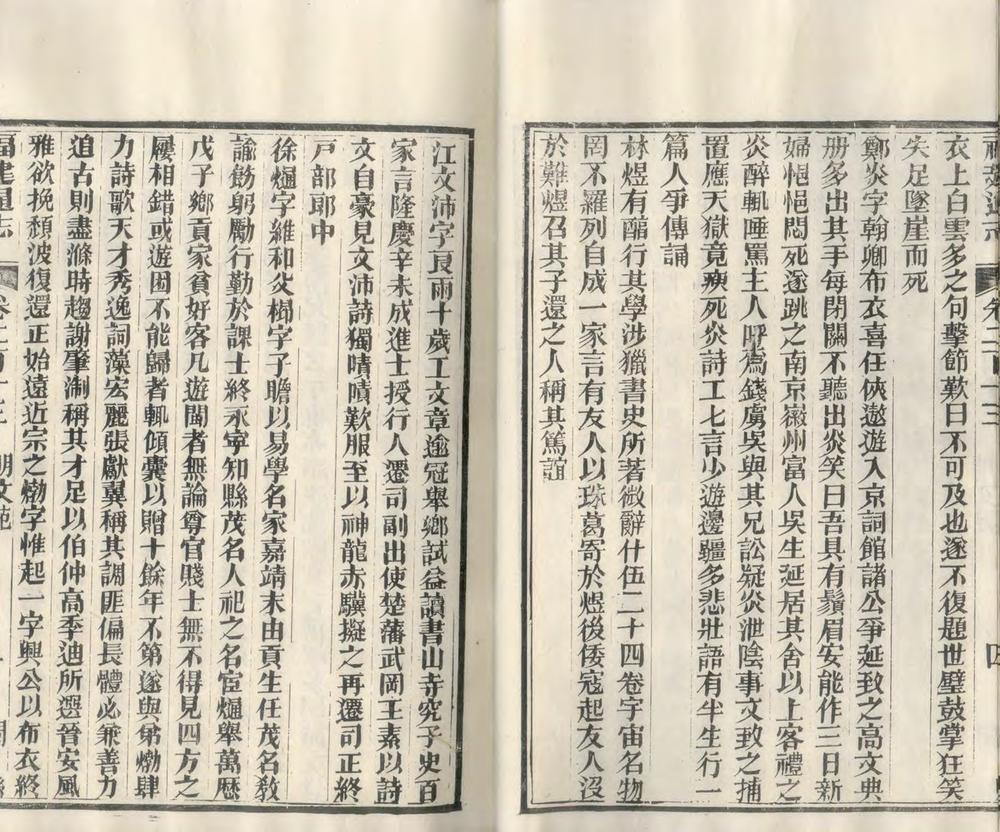 衣上白雲多之句擊節歎曰不可及也遂不復題世壁鼓掌狂笑
失足墜崖而死
鄭炎字翰卿布衣喜任俠遨遊入京詞館諸公爭延致之高文典
冊多出其手每閉關不聽出炎笑曰吾具有鬚眉安能作三日新
婦悒悒悶死遂跳之南京徽州富人吳生延居其舍以上客禮之
炎醉輒唾罵主人呼爲錢虜吳與其兄訟疑炎泄陰事文致之捕
置應天獄竟瘐死炎詩工七言少遊邊疆多悲壯語有半生行一
篇人爭傳誦
林煜有韶行其學涉獵書史所著微辭什伍二十四卷宇宙名物
罔不羅列自成一家言有友人以琜葛寄於煜後倭寇起友人沒
於難煜召其子還之人稱其篤誼
江文沛字艮雨十歲工文章逾冠舉鄉試益讀書山寺究子史百
家言隆慶辛未成進士授行人遷司副出使楚藩武岡王素以詩
文自豪見文沛詩獨嘖嘖歎服至以神龍赤驥擬之再遷司正終
戸部郎中
徐熥字維和父㭿字子瞻以易學名家嘉靖末由貢生任茂名敎
諭飭躬勵行勤於課士終永寧知縣茂名人祀之名宦熥舉萬歷
戊子鄉貢家貧好客凡遊閩者無論尊官賤士無不得見四方之
屨相錯或遊困不能歸者輒傾囊以贈十餘年不第遂與弟㶿肆
力詩歌天才秀逸詞藻宏麗張獻翼稱其調匪偏長體必兼善力
追古則盡滌時趨謝肇淛稱其才足以伯仲高季迪所選晉安風
雅欲挽頹波復還正始遠近宗之㶿字惟起一字興公以布衣終
福建通志 卷二百十三 明文苑